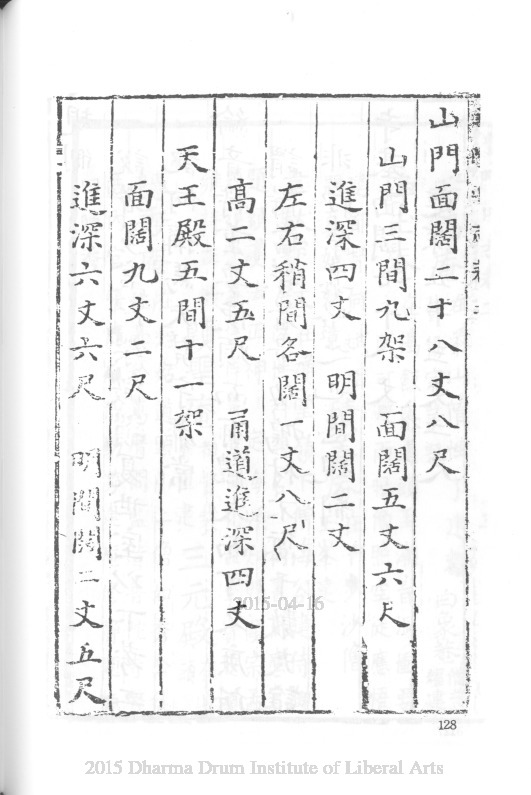 山門面闊二十八丈八尺
山門三間九架　面闊五丈六尺
進深四丈　明間闊二丈
左右稍間各闊一丈八尺
高二丈五尺　甬道進深四丈
天王殿五間十一架
面闊九丈二尺
進深六丈六尺　明間闊二丈五尺
2015-04-16
128
2015 Dharma Drum Institute of Liberal Arts